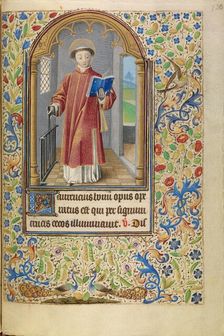 Laurencius bonum opus ope
ratus est qui per signum
crucis cecos illuminavit. V. Dis